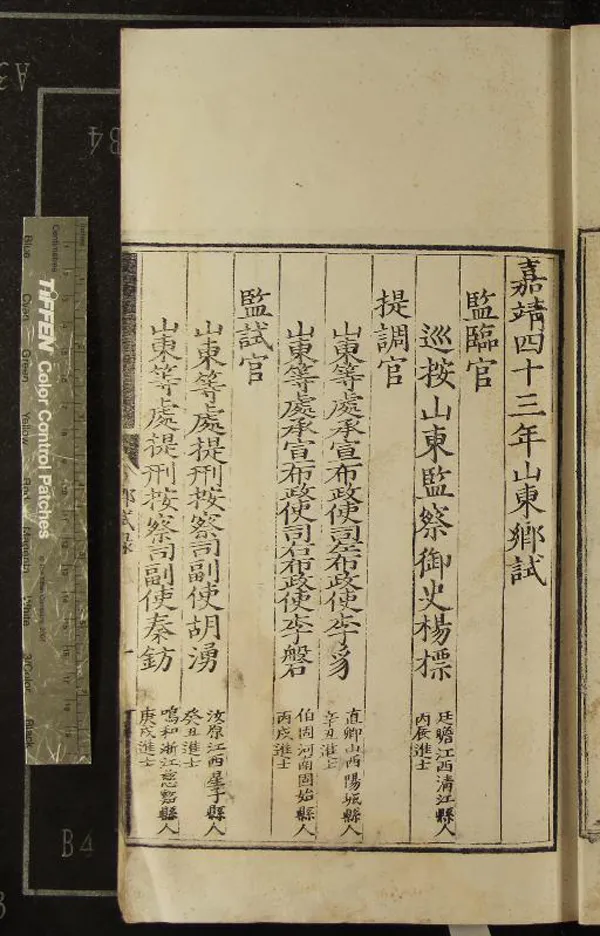 嘉靖四十三年山東鄉試
監臨官
巡按山東監察御史楊標
廷瞻江西清江縣人
丙辰進士
提調官
山東等處承宣布政使司左布政使李豸
直卿山西陽城縣人
辛丑進士
山東等處承宣布政使司右布政使李磐
伯固河南固始縣人
丙戌進士
監試官
山東等處提刑按察司副使胡湧
汝原江西星子縣人
癸丑進士
山東等處提刑按察司副使秦鈁
鳴和浙江慈谿縣人
庚戌進士
鄉試錄
一
TIFFEN Color Control Patches
Centimetres
Inches
Blue
Cyan
Green
Yellow
Red
Magenta
White
3/Color
Black
A3
B4
B4